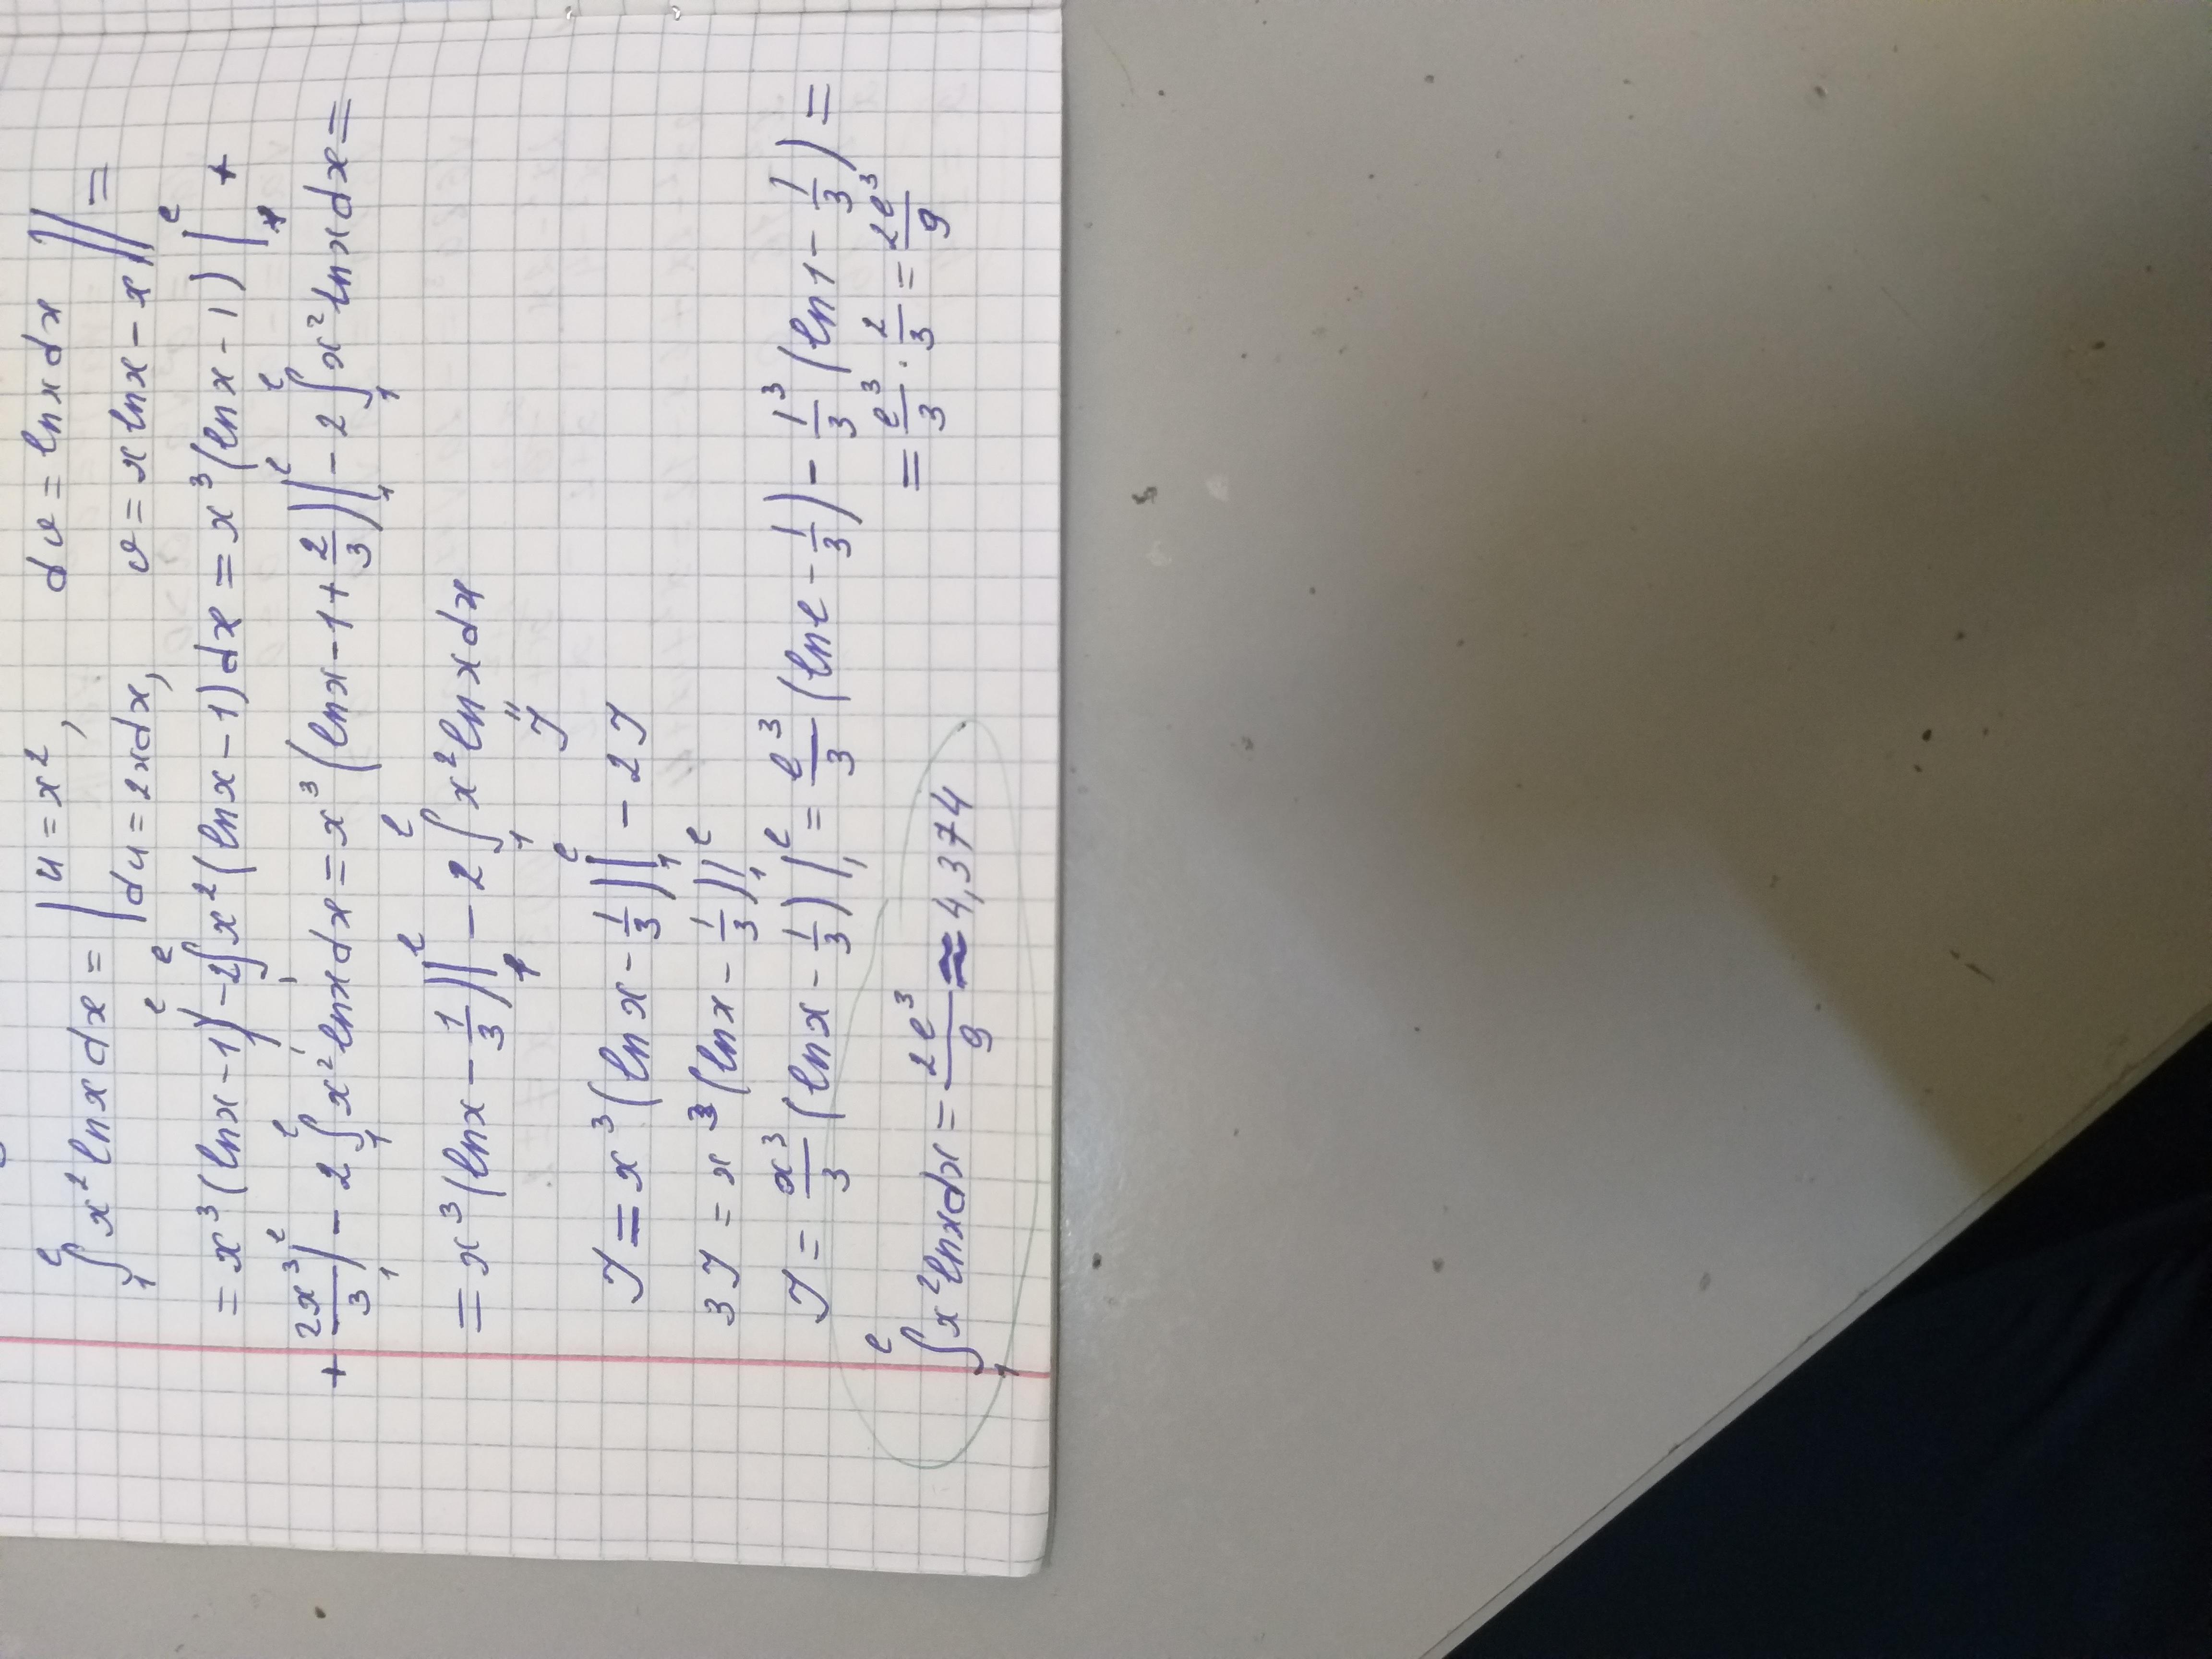 ∫₁ᵉ x² ln x dx = | u = x², dv = ln x dx ||
du = 2x dx, v = x ln x − x || =
= x³ (ln x − 1) |₁ᵉ − 2∫₁ᵉ x² (ln x − 1) dx = x³ (ln x − 1) |₁ᵉ +
+ 2x³/3 |₁ᵉ − 2 ∫₁ᵉ x² ln x dx = x³ (ln x − 1 + 2/3) |₁ᵉ − 2 ∫₁ᵉ x² ln x dx =
= x³ (ln x − 1/3) |₁ᵉ − 2 ∫₁ᵉ x² ln x dx
"
J
J = x³ (ln x − 1/3) |₁ᵉ − 2J
3J = x³ (ln x − 1/3) |₁ᵉ
J = x³/3 (ln x − 1/3) |₁ᵉ = e³/3 (ln e − 1/3) − 1³/3 (ln 1 − 1/3) =
= e³/3 · 2/3 = 2e³/9
∫₁ᵉ x² ln x dx = 2e³/9 ≈ 4,374